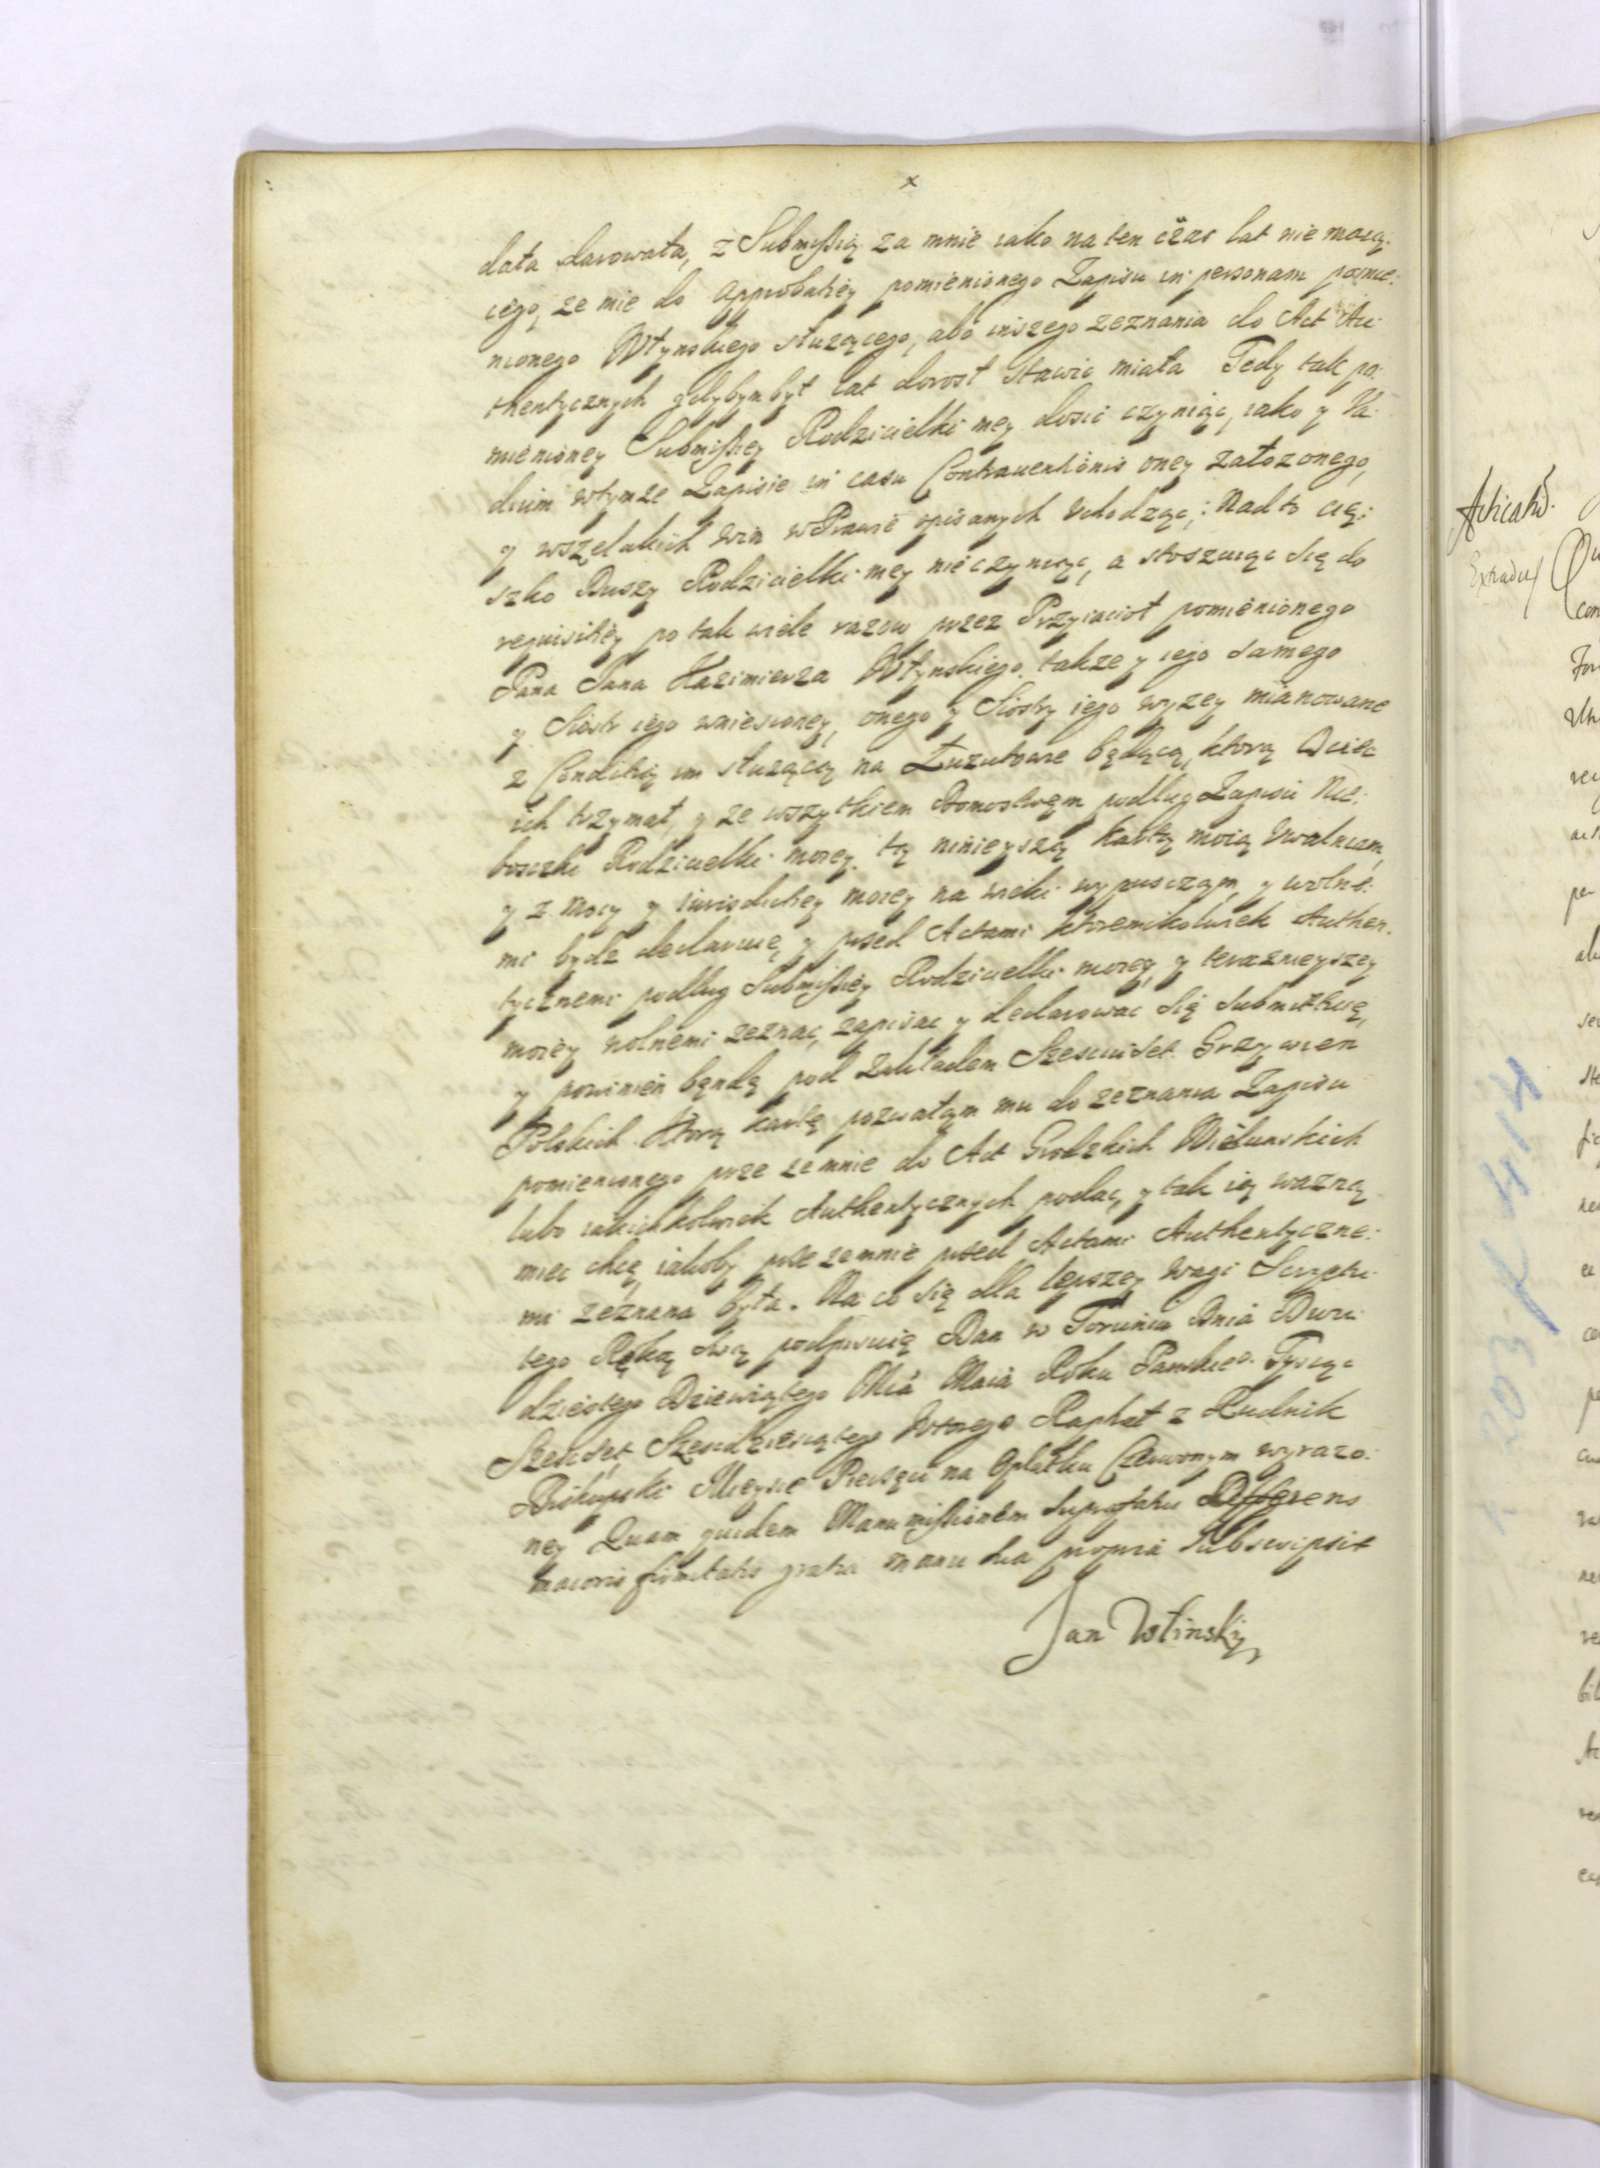 x
dała darowała, z Submissią za mnie iako na ten czas lat nie maią:
cego, ze mie do approbatiey pomienionego Zapisu in personam pomie:
nionego Włynskiego słuzącego, abo inszego zeznania do Act Au:
thentycznych gdybym był lat dorosł stawic miała Tedy tak po:
mienioney Submissiey Rodzicielki mey dosić czyniąc, iako y Va:
dium wtymze Zapisie in casu Contrauentionis oney załozonego,
y wszelakich win w Prawie opisanych Vchodząc; Nad to cię:
szko Duszy Rodzicielki mey nie czyniąc, a stoszuiąc się do
requisitiey po tak wiele razow przez Przyiacioł pomienionego
Pana Jana Kazimierza Włynskiego takze y iego samego
y Siostr iego wniesioney, onego y Siostry iego wyzey mianowane
z Conditią im słuzącą na Łuzutowie będącą, ktorą Ociec
ich trzymał, y ze wszytkiem Domostwem podług Zapisu Nie:
boszki Rodzicielki moiey, tą ninieyszą kartą moią Vwalniam
y z mocy y iurisdictiey moiey na wieki wypuszczam y wolne:
mi bydz declaruię, y przed Actami ktoremikolwiek Authen:
tycznemi podług Submissiey Rodzicielki moiey, y teraznieyszey
moiey wolnemi zeznac, zapisac y declarowac się submittuię,
y powinien będę pod zakładem Szesciuset Grzywien
Polskich Ktorą kartę pozwałam mu do zeznania Zapisu
pomienionego prze ze mnie do Act Grodzkich Wieluńskich
lubo iakichkolwiek Authentycznych podac, y tak ią wazną
miec chcę, iakoby prze zemnie przed Actami Authentyczne:
mi zeznana była. Na co się dla lepszey wagi Scryptu
tego Ręką swą podpisuię Dan w Toruniu Dnia Dwu:
dziestego Dziewiątego Mca Maia Roku Panskieo Tysiąc
Szescset Szescdziesiątego Wtorego Raphał z Rudnik
Biskupski Mieysce Pieczęci na Opłatku Czerwonym wyrazo:
ney Quam quidem Manumissionem suprafatus Offerens
maioris firmitatis gratia manu sua propria subscripsit
Jan Włinsky